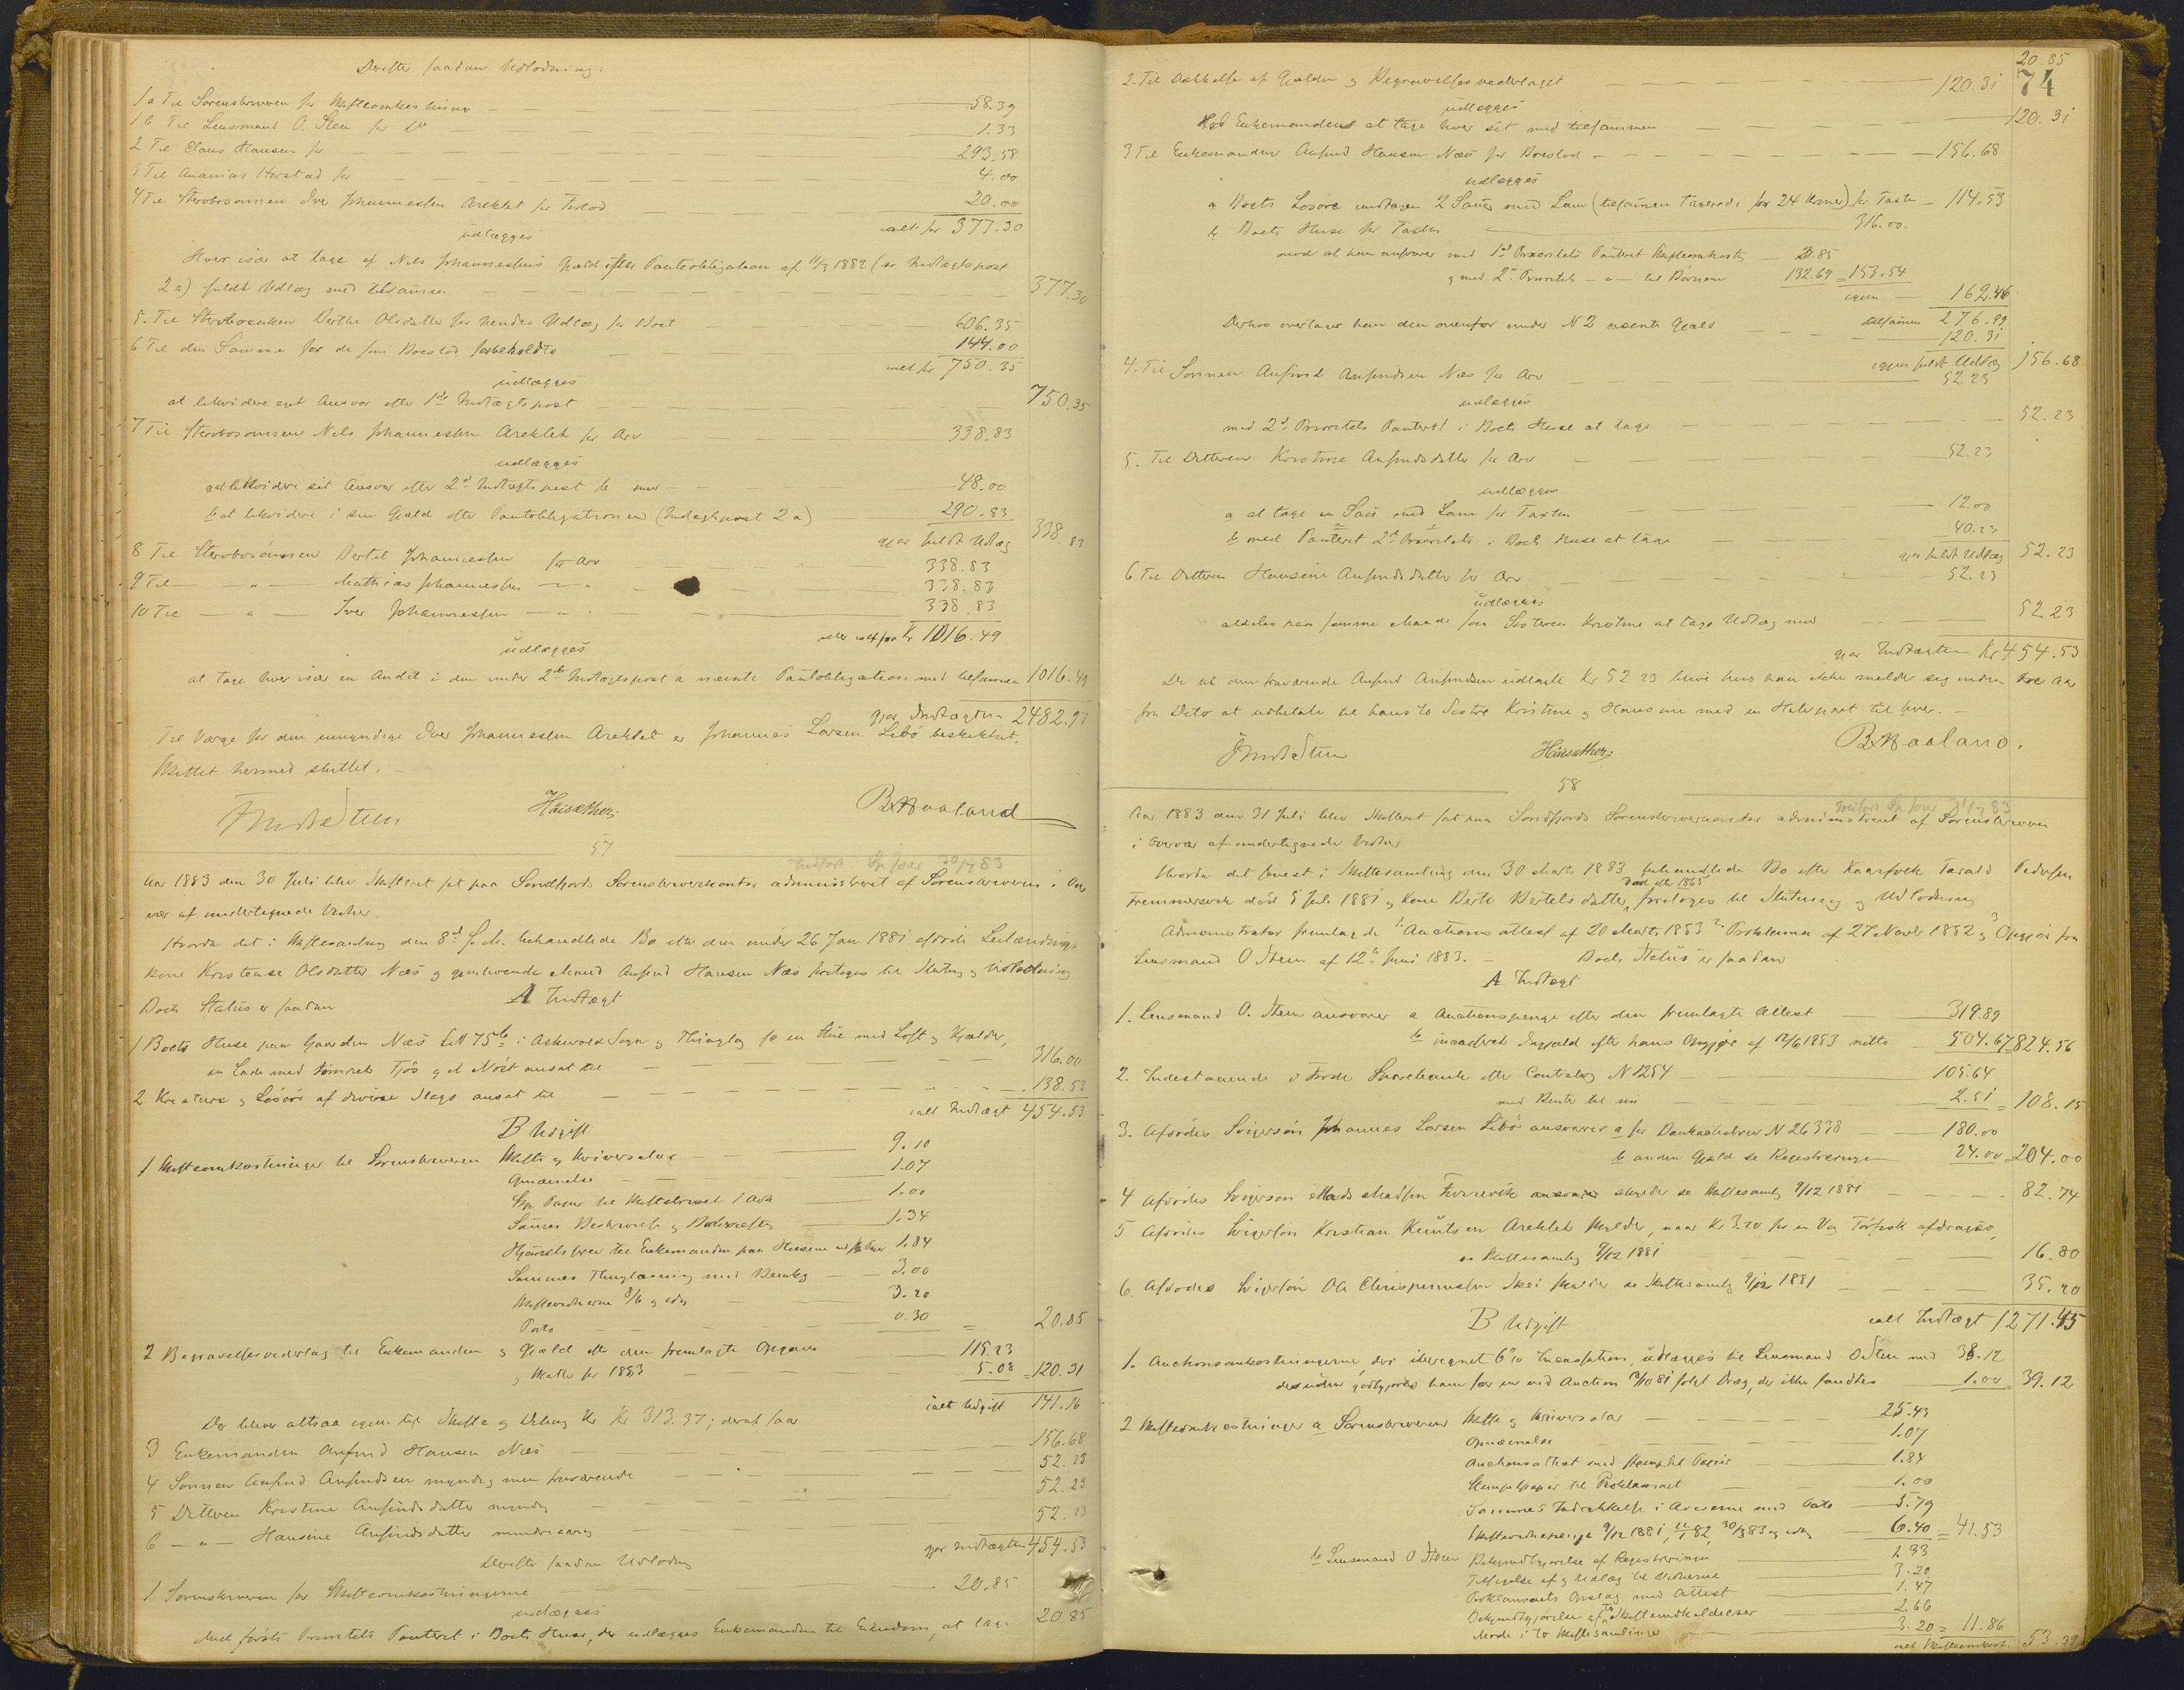 Derefter saadan Udlodning:
1a Til Sorenskriveren for Skifteomkostninger 58.39
1b Til Lensmand O. Steen for do 1.33
2 Til Claus Hansen for 293.58
3 Til Ananias Herstad for 4.00
4 Til Stervbosønnen Iver Johannessen Areklet for Forlod 20.00
ialt kr 377.30
udlægges
Hver især at tage af Nils Johannessens Gjæld efter Panteobligation af 11/3 1882 (se Indtægtspost
2a) fuldt Udlæg med tilsammen 377.30
5. Til Stervboenken Berthe Olsdatter for hendes Udlæg for Boet 606.35
6 Til den Samme for de som Boeslod forbeholdte 144.00
ialt kr 750.35
udlægges
at likvidere eget Ansvar efter 1ste Indtægtspost 750.35
7 Til Stervbosønnen Nils Johannessen Areklet for Arv 338.83
udlægges
a at likvidere sit Ansvar efter 2d Indtægtspost b med 48.00
b at likvidere i sin Gjæld efter Pantobligationen (Indtægtspost 2 a) 290.83
gjør fuldt Udlæg 338.83
8 Til Stervbosønnen Bertel Johannessen for Arv 338.83
9 Til — " — Mathias Johannessen — " 338.83
10 Til — " — Iver Johannessen — " 338.83
eller ialt for Kr 1016.49
udlægges
at tage hver især en Andel i den under 2den Indtægtspost a nævnte Pantobligation med tilsammen 1016.49
gjør Indtægten 2482.97
Til Værge for den umyndige Iver Johannessen Areklet er Johannes Larsen Libø beskikket.
Skiftet hermed sluttet.
Knud Steen Haisæther B. Haaland
57
Indført Sp Jour 30/7 83
Aar 1883 den 30 Juli blev Skifteret sat paa Søndfjords Sorenskriverkontor administreret af Sorenskriveren i Over
vær af undertegnede Vidner.
Hvorda det i Skiftesamling den 8de f. M. behandlede Bo efter den under 26 Jan 1881 afdøde Leilændings
kone Kristense Olsdatter Næs og gjenlevende Mand Anfind Hansen Næs foretoges til Slutning og Udlodning
Boets Status er saadan
A Indtægt
1 Boets Huse paa Gaarden Næs LN 75b i Askevold Sogn og Thinglag so en Stue med Loft og Kjælder,
en Lade med tømret Fjøs og et Nøst ansat til 316.00
2 Kreature og Løsøre af diverse Slags ansat til 138.53
ialt Indtægt 454.53
B Udgift
1 Skifteomkostninger til Sorenskriveren Skifte og Skriversalær 9.10
Opnævnelse 1.07
Stp Papir til Skiftebrevet 1 Ark 1.00
Sammes Beskrivelse og Bekræftelse 1.34
Hjemmelsbrev til Enkemanden paa Husene med Stp Papir 1.84
Sammes Thinglæsning med Bevidn 3.00
Skiftevidnerne 8/6 og idag 3.20
Porto 0.30 = 20.85
2 Begravelsesvederlag til Enkemanden og Gjæld efter den fremlagte Opgave 115.23
og Skatter for 1883 5.08 = 120.31
ialt Udgift 141.16
Der bliver altsaa igjen til Skifte og Deling Kr 313.37; deraf faar
3 Enkemanden Anfind Hansen Næs 156.68
4 Sønnen Anfind Anfindsen myndig men fraværende 52.23
5 Datteren Kristine Anfindsdatter myndig 52.23
6 — " — Hansine Anfindsdatter mindreaarig 52.23
gjør Indtægten 454.53
Derefter saadan Udlodning
1 Sorenskriveren for Skifteomkostningerne 20.85
udlægges
Med første Prioritets Panteret i Boets Huse, der udlægges Enkemanden til Eiendom, at tage 20.85
20.85
74
2. Til Dækkelse af Gjælden og Begravelsesvederlaget 120.31
udlægges
Hos Enkemanden at tage hver sit med tilsammen 120.31
3 Til Enkemanden Anfind Hansen Næs for Boeslod 156.68
udlægges
a Boets Løsøre undtagen 2 Sauer med Lam (tilsammen taxerede for 24 Kroner) for Taxten 114.53
b Boets Huse for Taxten 316.00.
mod at han ansvarer med 1ste Prioritets Panteret Skifteomkostn 20.85
og med 2den Prioritets — " — til Børnene 132.69 = 153.54
igjen 162.46
tilsammen 276.99
Derhos overtager han den ovenfor under N 2 nævnte Gjæld 120.31
igjen fuldt Udlæg 156.68
4. Til Sønnen Anfind Anfindsen Næs for Arv 52.23
udlægges
med 2d Prioritets Panteret i Boets Huse at tage 52.23
5. Til Datteren Kristine Anfindsdatter for Arv 52.23
udlægges
a at tage en Sau med Lam for Taxten 12.00
b med Panteret 2den Prioritets i Boets Huse at tage 40.23
gjør fuldt Udlæg 52.23
6 Til Datteren Hansine Anfindsdatter for Arv 52.23
udlægges
aldeles paa samme Maade som Søsteren Kristine at tage Udlæg med 52.23
gjør Indtægten Kr 454.53
De til den fraværende Anfind Anfindsen udlagte Kr 52.23 blive hvis han ikke melder sig inden tre Aar
fra Dato at udbetale til hans to Søstre Kristine og Hansine med en Halvpart til hver.
Knud Steen Haisæther B. Haaland.
58
Indført Sp Jour 31/7 83
Aar 1883 den 31 Juli blev Skifteret sat paa Søndfjords Sorenskriverkontor administreret af Sorenskriveren
i Overvær af undertegnede Vidner
Hvorda det senest i Skiftesamling den 30 Marts 1883 behandlede Bo efter Kaarfolk Tarald Pedersen
Fremmersvik død 5 Juli 1881 og Kone Berte Bertelsdatter død efter 1865, foretoges til Slutning og Udlodning
Administrator fremlagde 1. Auctions attest af 20 Marts 1883 2. Proklamaer af 27 Novbr 1882 og 3 Opgjør fra
Lensmand O Steen af 12te Juni 1883. — Boets Status er saadan
A Indtægt
1. Lensmand O. Steen ansvarer a Auctionspenge efter den fremlagte Attest 319.89
b incasseret Indgjæld efter hans Opgjør af 12/6 1883 netto 504.67 824.56
2. Indestaaende i Førde Sparebank efter Contrabog N 1254 105.64
med Renter til nu 2.51 = 108.15
3. Afdødes Svigersøn Johannes Larsen Libø ansvarer a for Bankaktiebrev N 26338 180.00
b anden Gjæld se Registreringen 24.00 = 204.00
4 Afdødes Svigersøn Mads Madsen Furevik ansvarer skylder se Skiftesamlg 9/12 1881 82.74
5 Afdødes Svigersøn Kristian Knutsen Areklet skylder, naar Kr 3.20 for en Vog Tørfisk afdrages,
se Skiftesamlg 9/12 1881 16.80
6. Afdødes Svigersøn Ole Clemmensen Skei skylder se Skiftesamlg 9/12 1881 35.20
ialt Indtægt 1271.45
B Udgift
1. Auctionsomkostningerne, deri iberegnet 6% Incassation, udlægges til Lensmand O Steen med 38.12
desuden godtgjøres ham for en ved Auction 12/10 81 solgt Dræg, der ikke fandtes 1.00 39.12
2 Skifteomkostninger a Sorenskriveren Skifte og Skriversalær 25.43
Opnævnelse 1.07
Auctionsattest med stemplet Papir 1.84
Stempelpapir til Proklamaet 1.00
Sammes Indrykkelse i Aviserne med Porto 5.79
Skiftevidnepenge 9/12 1881, 82, 30/3 83 og idag 6.40 = 41.53
b Lensmand O Steen Bekjendtgjørelse af Registreringen 1.33
Tilsigelse af og Udlæg til Vidnerne 3.20
Proklamaets Opslag med Attest 1.47
Bekjendtgjørelse af to Skifteindkaldelser 2.66
Møde i to Skiftesamlinger 3.20 = 11.86
ialt Skifteomkost. 53.39